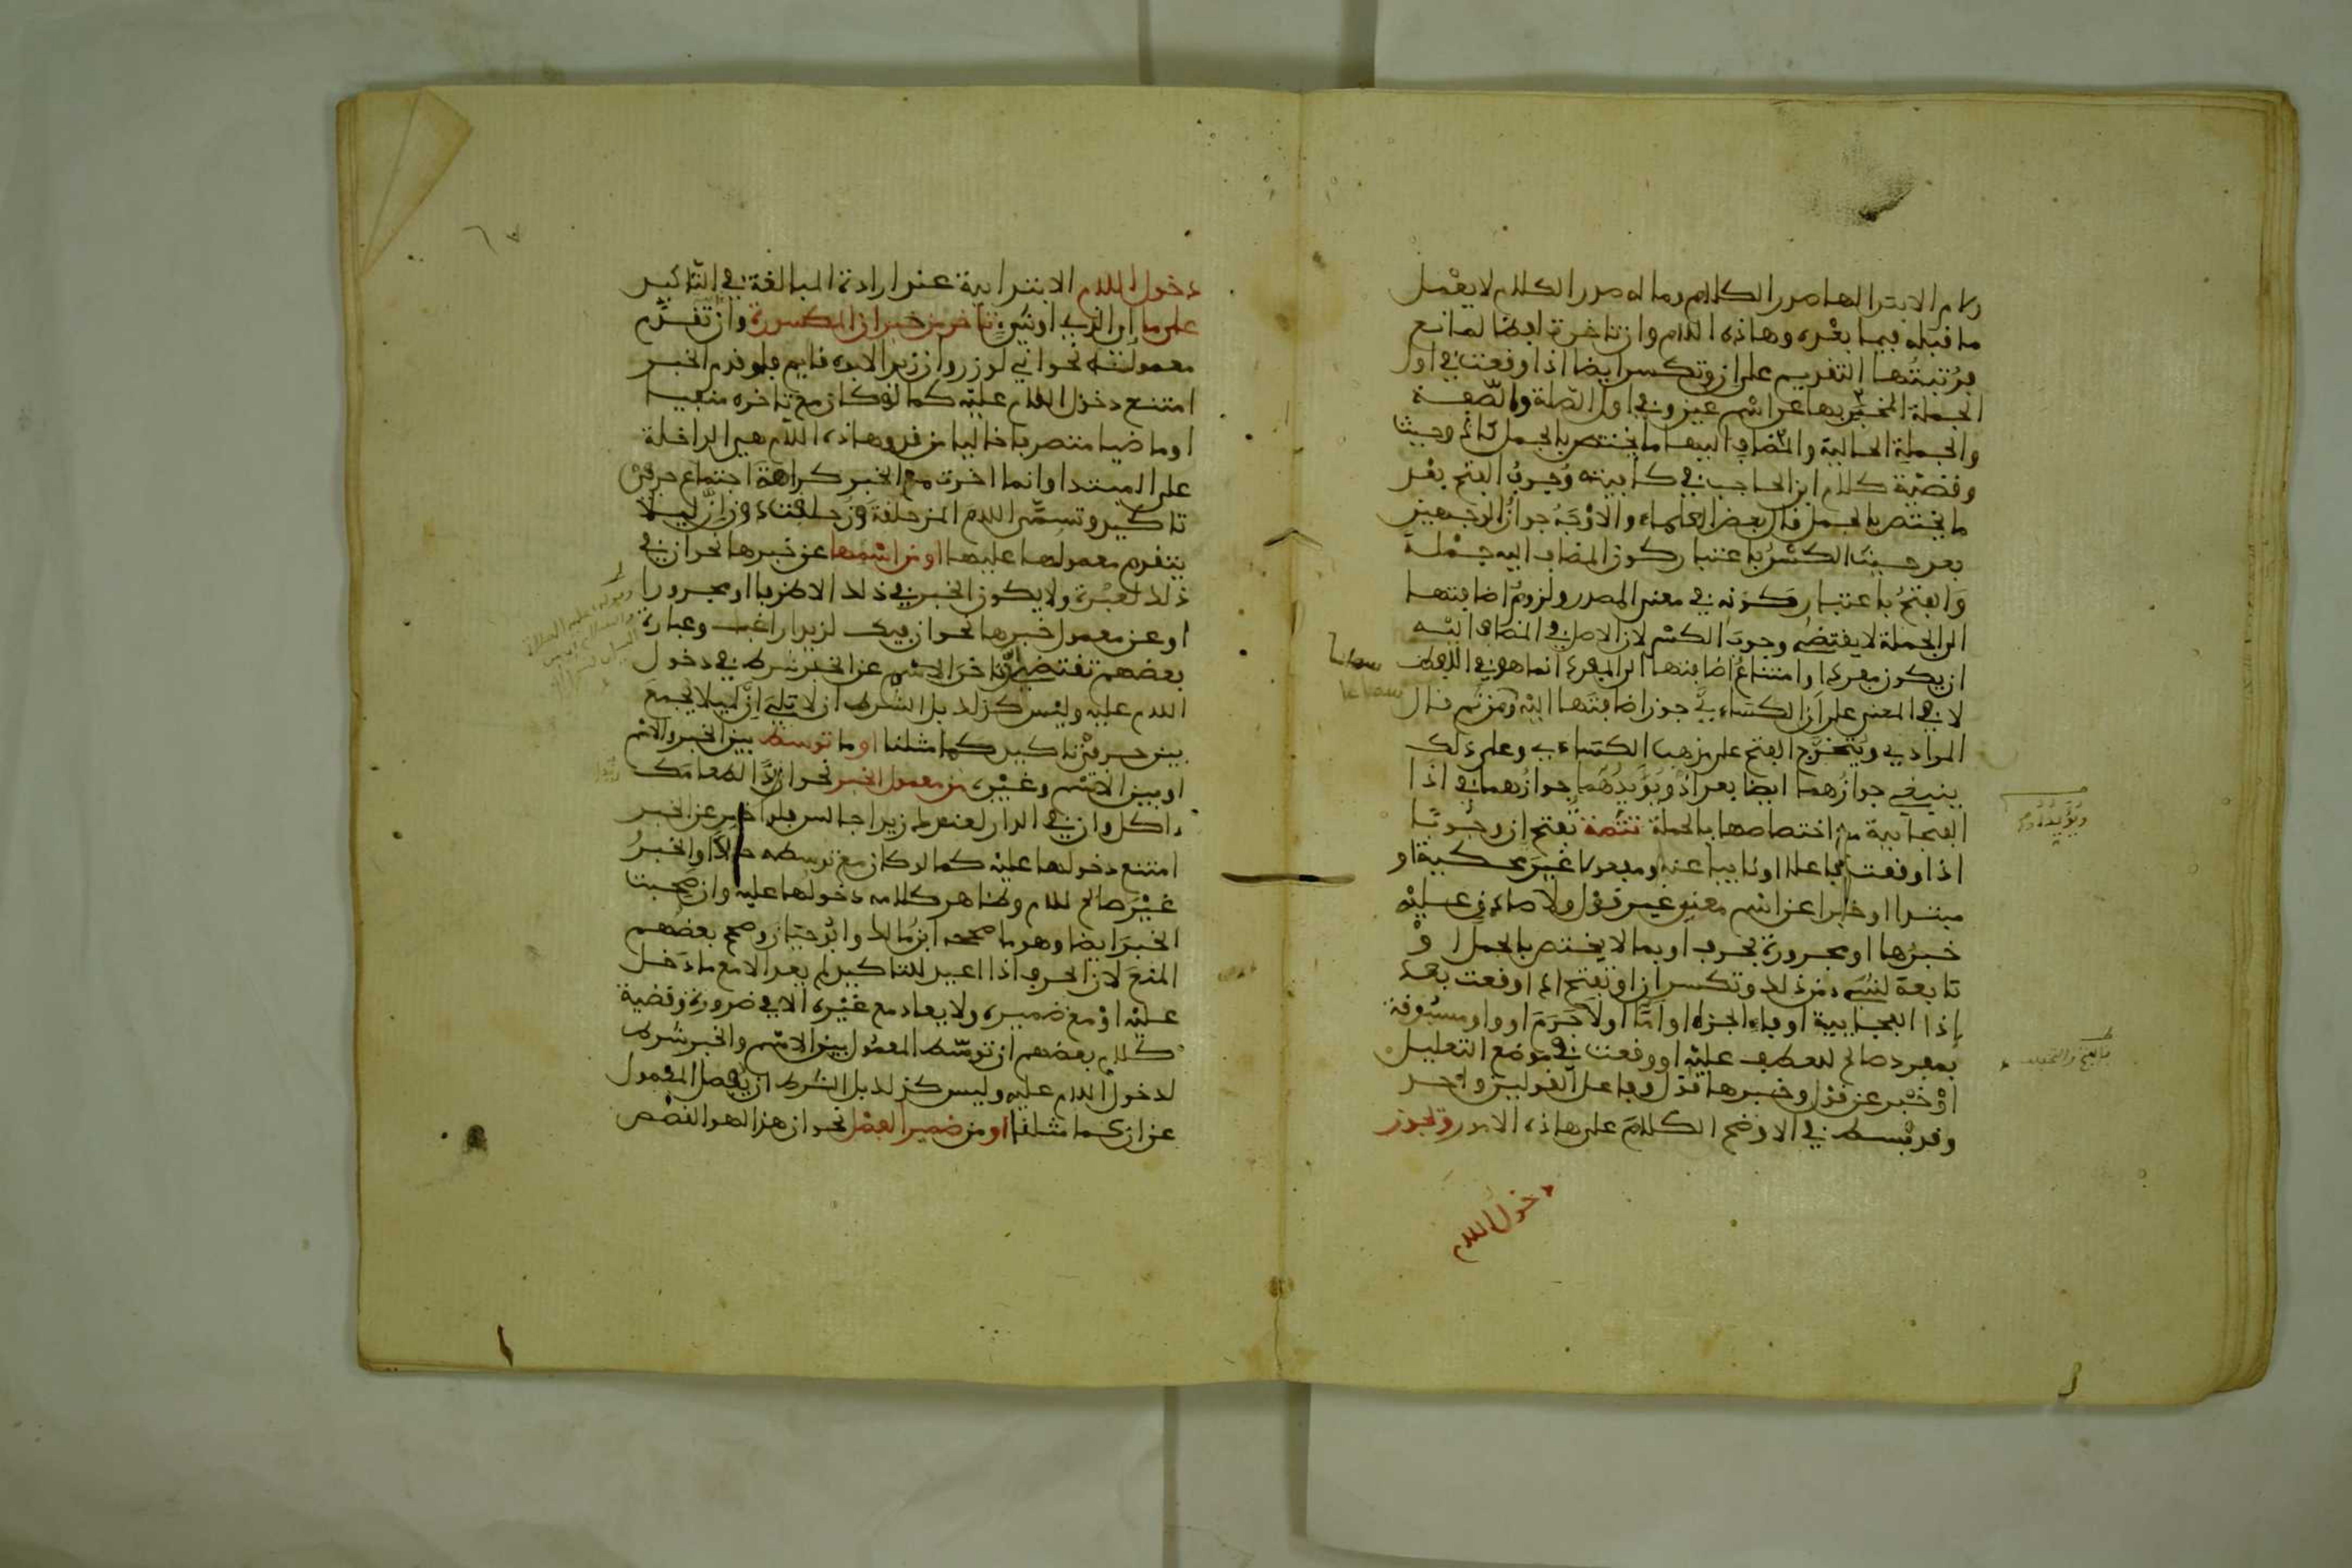 ولام الابتدا لها صدر الكلام وما له صدر الكلام لا يعمل
ما قبله فيما بعده وهاذه اللام وان تاخرت ايضا لمانع
فرتبتها التقديم على ان وتكسر ايضا اذا وقعت في اول
الجملة المخبر بها عن اسم عين وفي اول الصلة والصفة
والجملة الحالية والمضاف اليها ما يختص بالجمل كاذ وحيث
وقضية كلام ابن الحاجب في كافيته وجوب الفتح بعد
ما يختص بالجمل قال بعض العلماء والاوجه جواز الوجهين
بعد حيث الكسر باعتبار كون المضاف اليه جملة
والفتح باعتبار كونه في معنى المصدر ولزوم اضافتها
الى الجملة لا يقتضي وجوب الكسر لان الاصل في المضاف اليه
ان يكون مفردا وامتناع اضافتها الى المفرد انما هو في اللفظ
لا في المعنى على ان الكساءي جوز اضافتها اليه ومن ثم قال
المرادي ويتخرج الفتح على مذهب الكساءي وعلى ذلك
ينبغي جوازهما ايضا بعد اذ ويؤيدهما جوازهما في اذا
الفجاءية مع اختصاصها بالجملة تتمة تفتح ان وجوبا
اذا وقعت فاعلا او نايبا عنه او مفعولا غير محكية او
مبتدا او خبرا عن اسم معنى غير قول ولا صادق عليه
خبرها او مجرورة بحرف او بما لا يختص بالجمل او
تابعة لشيء من ذلك وتكسر ان او تفتح اذا وقعت بعد
إذا الفجاءية او فاء الجزاء او اما او لا جرم او واو مسبوقة
بمفرد صالح للعطف عليه او وقعت في موضع التعليل
او خبر عن قول وخبرها قول وفاعل القولين واحد
وقد بسط في الاوضح الكلام على هاذه الامور وتجوز
دخول اللام
دخول اللام الابتداءية عند ارادة المبالغة في التاكيد
على ما اي الذي او شيء تاخر من خبر ان المكسورة وان تقدم
معموله نحو اني لوزر وان زيدا لابوه قايم فلو قدم الخبر
امتنع دخول اللام عليه كما لو كان مع تاخره منفيا
او ماضيا متصرفا خاليا من قد وهاذه اللام هي الداخلة
على المبتدا وانما اخرت مع الخبر كراهة اجتماع حرفي
تاكيد وتسمى اللام المزحلقة وزحلقت دون ان ليلا
يتقدم معمولها عليها او من اسمها عن خبرها نحو ان في
ذلك لعبرة ولا يكون الخبر في ذلك الا ظرفا او مجرورا
او عن معمول خبرها نحو ان فيك لزيدا راغب وعبارة
بعضهم تقتضي ان تاخر الاسم عن الخبر شرط في دخول
اللام عليه وليس كذلك بل الشرط ان لا تلي ان ليلا يجمع
بين حرفي تاكيد كما مثلنا او ما توسط بين الخبر والاسم
او بين الاسم وغيره من معمول الخبر نحو ان زيدا لطعامك
ءاكل وان في الدار لعندك زيدا جالس فلو اخر عن الخبر
امتنع دخولها عليه كما لو كان مع توسطه حالا والخبر
غير صالح للام وظاهر كلامه دخولها عليه وان صحبت
الخبر ايضا وهو ما صححه ابن مالك وابو حيان وصحح بعضهم
المنع لان الحرف اذا اعيد للتاكيد لم يعد الا مع ما دخل
عليه او مع ضميره ولا يعاد مع غيره الا في ضرورة وقضية
كلام بعضهم ان توسط المعمول بين الاسم والخبر شرط
لدخول اللام عليه وليس كذلك بل الشرط ان يفصل المعمول
عن ان كما مثلنا او من ضمير الفصل نحو ان هذا لهو القصص